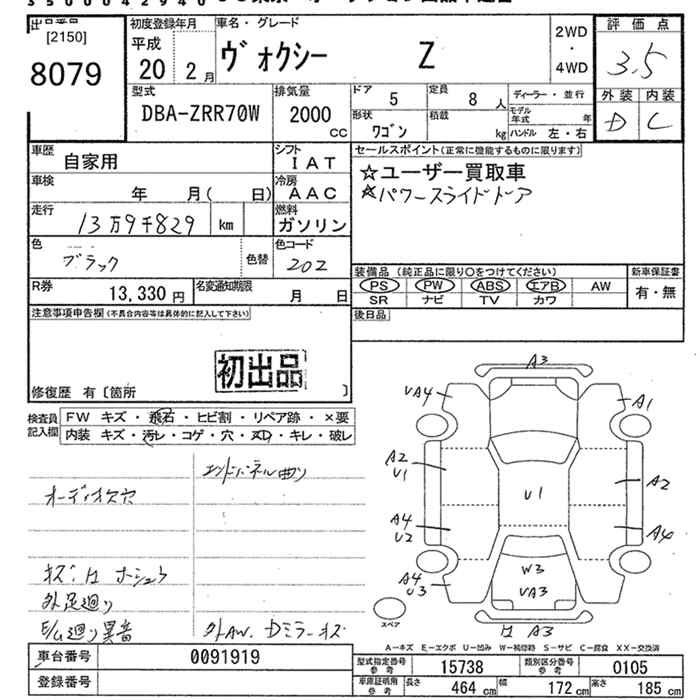 出品番号
[2150]
8079
初度登録年月
平成
20 2 月
車名・グレード
ヴォクシー Z
2WD
・
4WD
評価点
3.5
外装 内装
D C
型式
DBA-ZRR70W
排気量
2000
CC
ドア 5
定員 8 人
形状 ワゴン
積載 kg
ディーラー・並行
モデル年式 年
ハンドル 左・右
車歴
自家用
シフト
I A T
セールスポイント(正常に機能するものに限ります)
☆ユーザー買取車
☆パワースライドドア
車検
年 月( 日)
冷房
A A C
走行
13万9千829 km
燃料
ガソリン
色
ブラック
色替
色コード
202
装備品 (純正品に限り○をつけてください)
新車保証書
PS PW ABS エアB AW
SR ナビ TV カワ
有・無
R券
13,330 円
名変通知期限
月 日
後日品
注意事項申告欄(不具合内容等は具体的に記入して下さい)
初出品
修復歴 有〔箇所 〕
検査員記入欄
FW キズ・飛石・ヒビ割・リペア跡・×要
内装 キズ・汚レ・コゲ・穴・メD・キレ・破レ
エンドパネル曲り
オーディオ欠穴
外足廻り
E/G廻り異音
外AW、Dミラーキズ
A3
VA4
A1
A2
U1
U1
A2
A4
U2
A4
A4
U3
W3
VA3
A3
スペア
A-キズ E-エクボ U-凹み W-補修跡 S-サビ C-腐食 XX-交換済
車台番号
0091919
登録番号
型式指定番号 参考 15738
類別区分番号 参考 0105
車庫証明用 参考
長さ 464 cm
幅 172 cm
高さ 185 cm